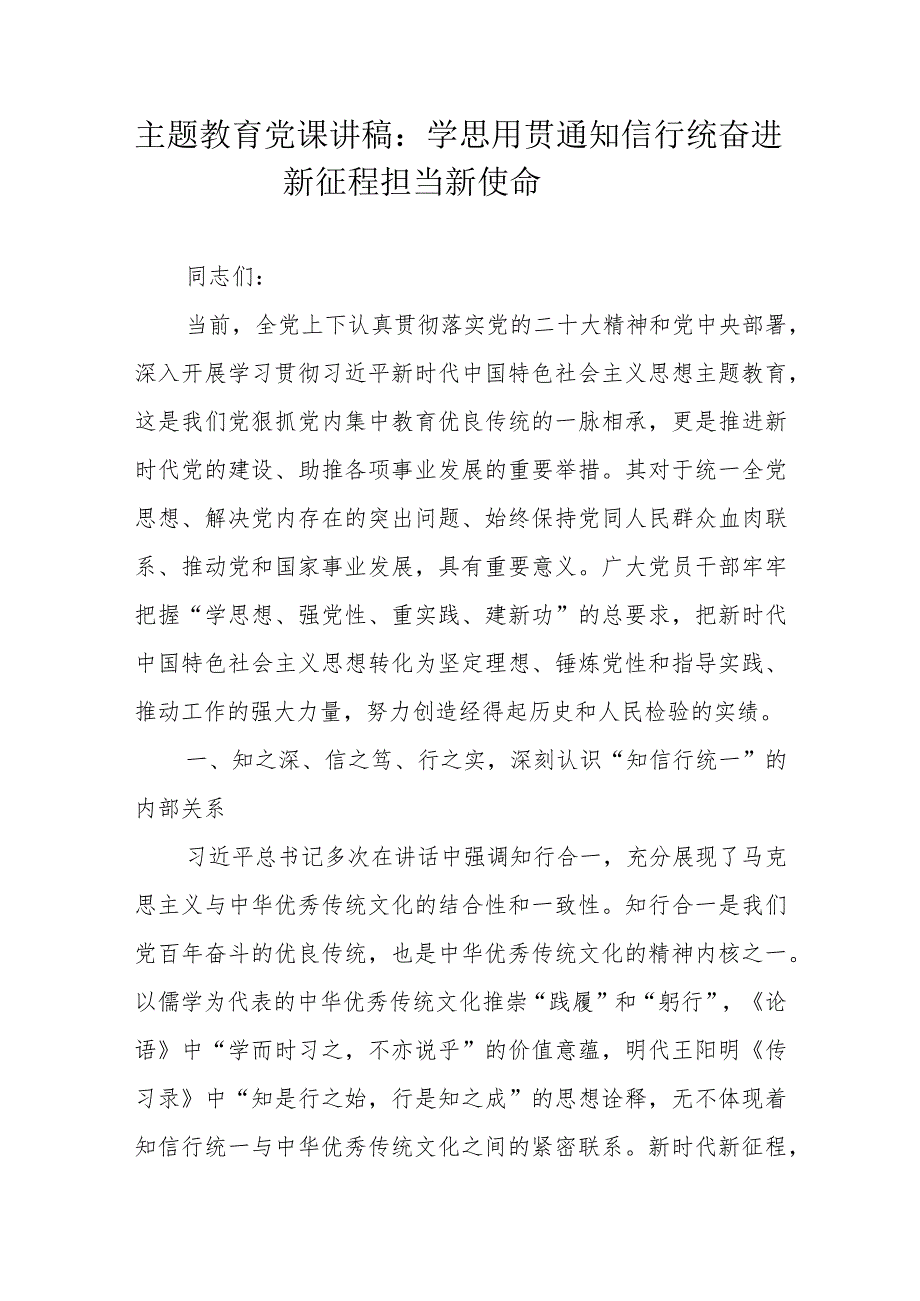 主题教育党课讲稿：学思用贯通知信行统奋进
新征程担当新使命
同志们：
当前，全党上下认真贯彻落实党的二十大精神和党中央部署，
深入开展学习贯彻习近平新时代中国特色社会主义思想主题教育，
这是我们党狠抓党内集中教育优良传统的一脉相承，更是推进新
时代党的建设、助推各项事业发展的重要举措。其对于统一全党
思想、解决党内存在的突出问题、始终保持党同人民群众血肉联
系、推动党和国家事业发展，具有重要意义。广大党员干部牢牢
把握“学思想、强党性、重实践、建新功”的总要求，把新时代
中国特色社会主义思想转化为坚定理想、锤炼党性和指导实践、
推动工作的强大力量，努力创造经得起历史和人民检验的实绩。
一、知之深、信之笃、行之实，深刻认识“知信行统一”的
内部关系
习近平总书记多次在讲话中强调知行合一，充分展现了马克
思主义与中华优秀传统文化的结合性和一致性。知行合一是我们
党百年奋斗的优良传统，也是中华优秀传统文化的精神内核之一。
以儒学为代表的中华优秀传统文化推崇“践履”和“躬行”，《论
语》中“学而时习之，不亦说乎”的价值意蕴，明代王阳明《传
习录》中“知是行之始，行是知之成”的思想诠释，无不体现着
知信行统一与中华优秀传统文化之间的紧密联系。新时代新征程，